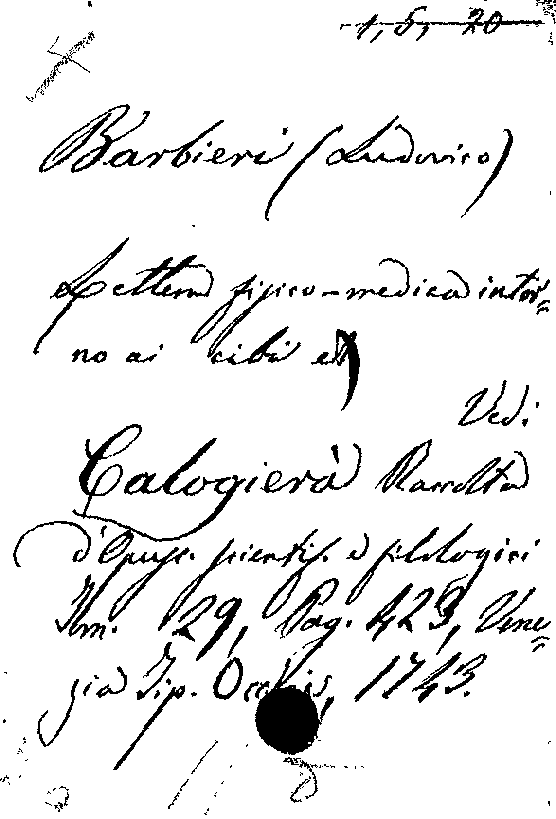 1, 5, 20
Barbieri (Ludovico)
Lettera fisico-medica intor=
no ai cibi
Vedi
Calogierà Raccolta
d'Opusc. scientif. e filologici
Tom. 29, Pag. 423, Vene=
zia Tip. Occhis, 1743.